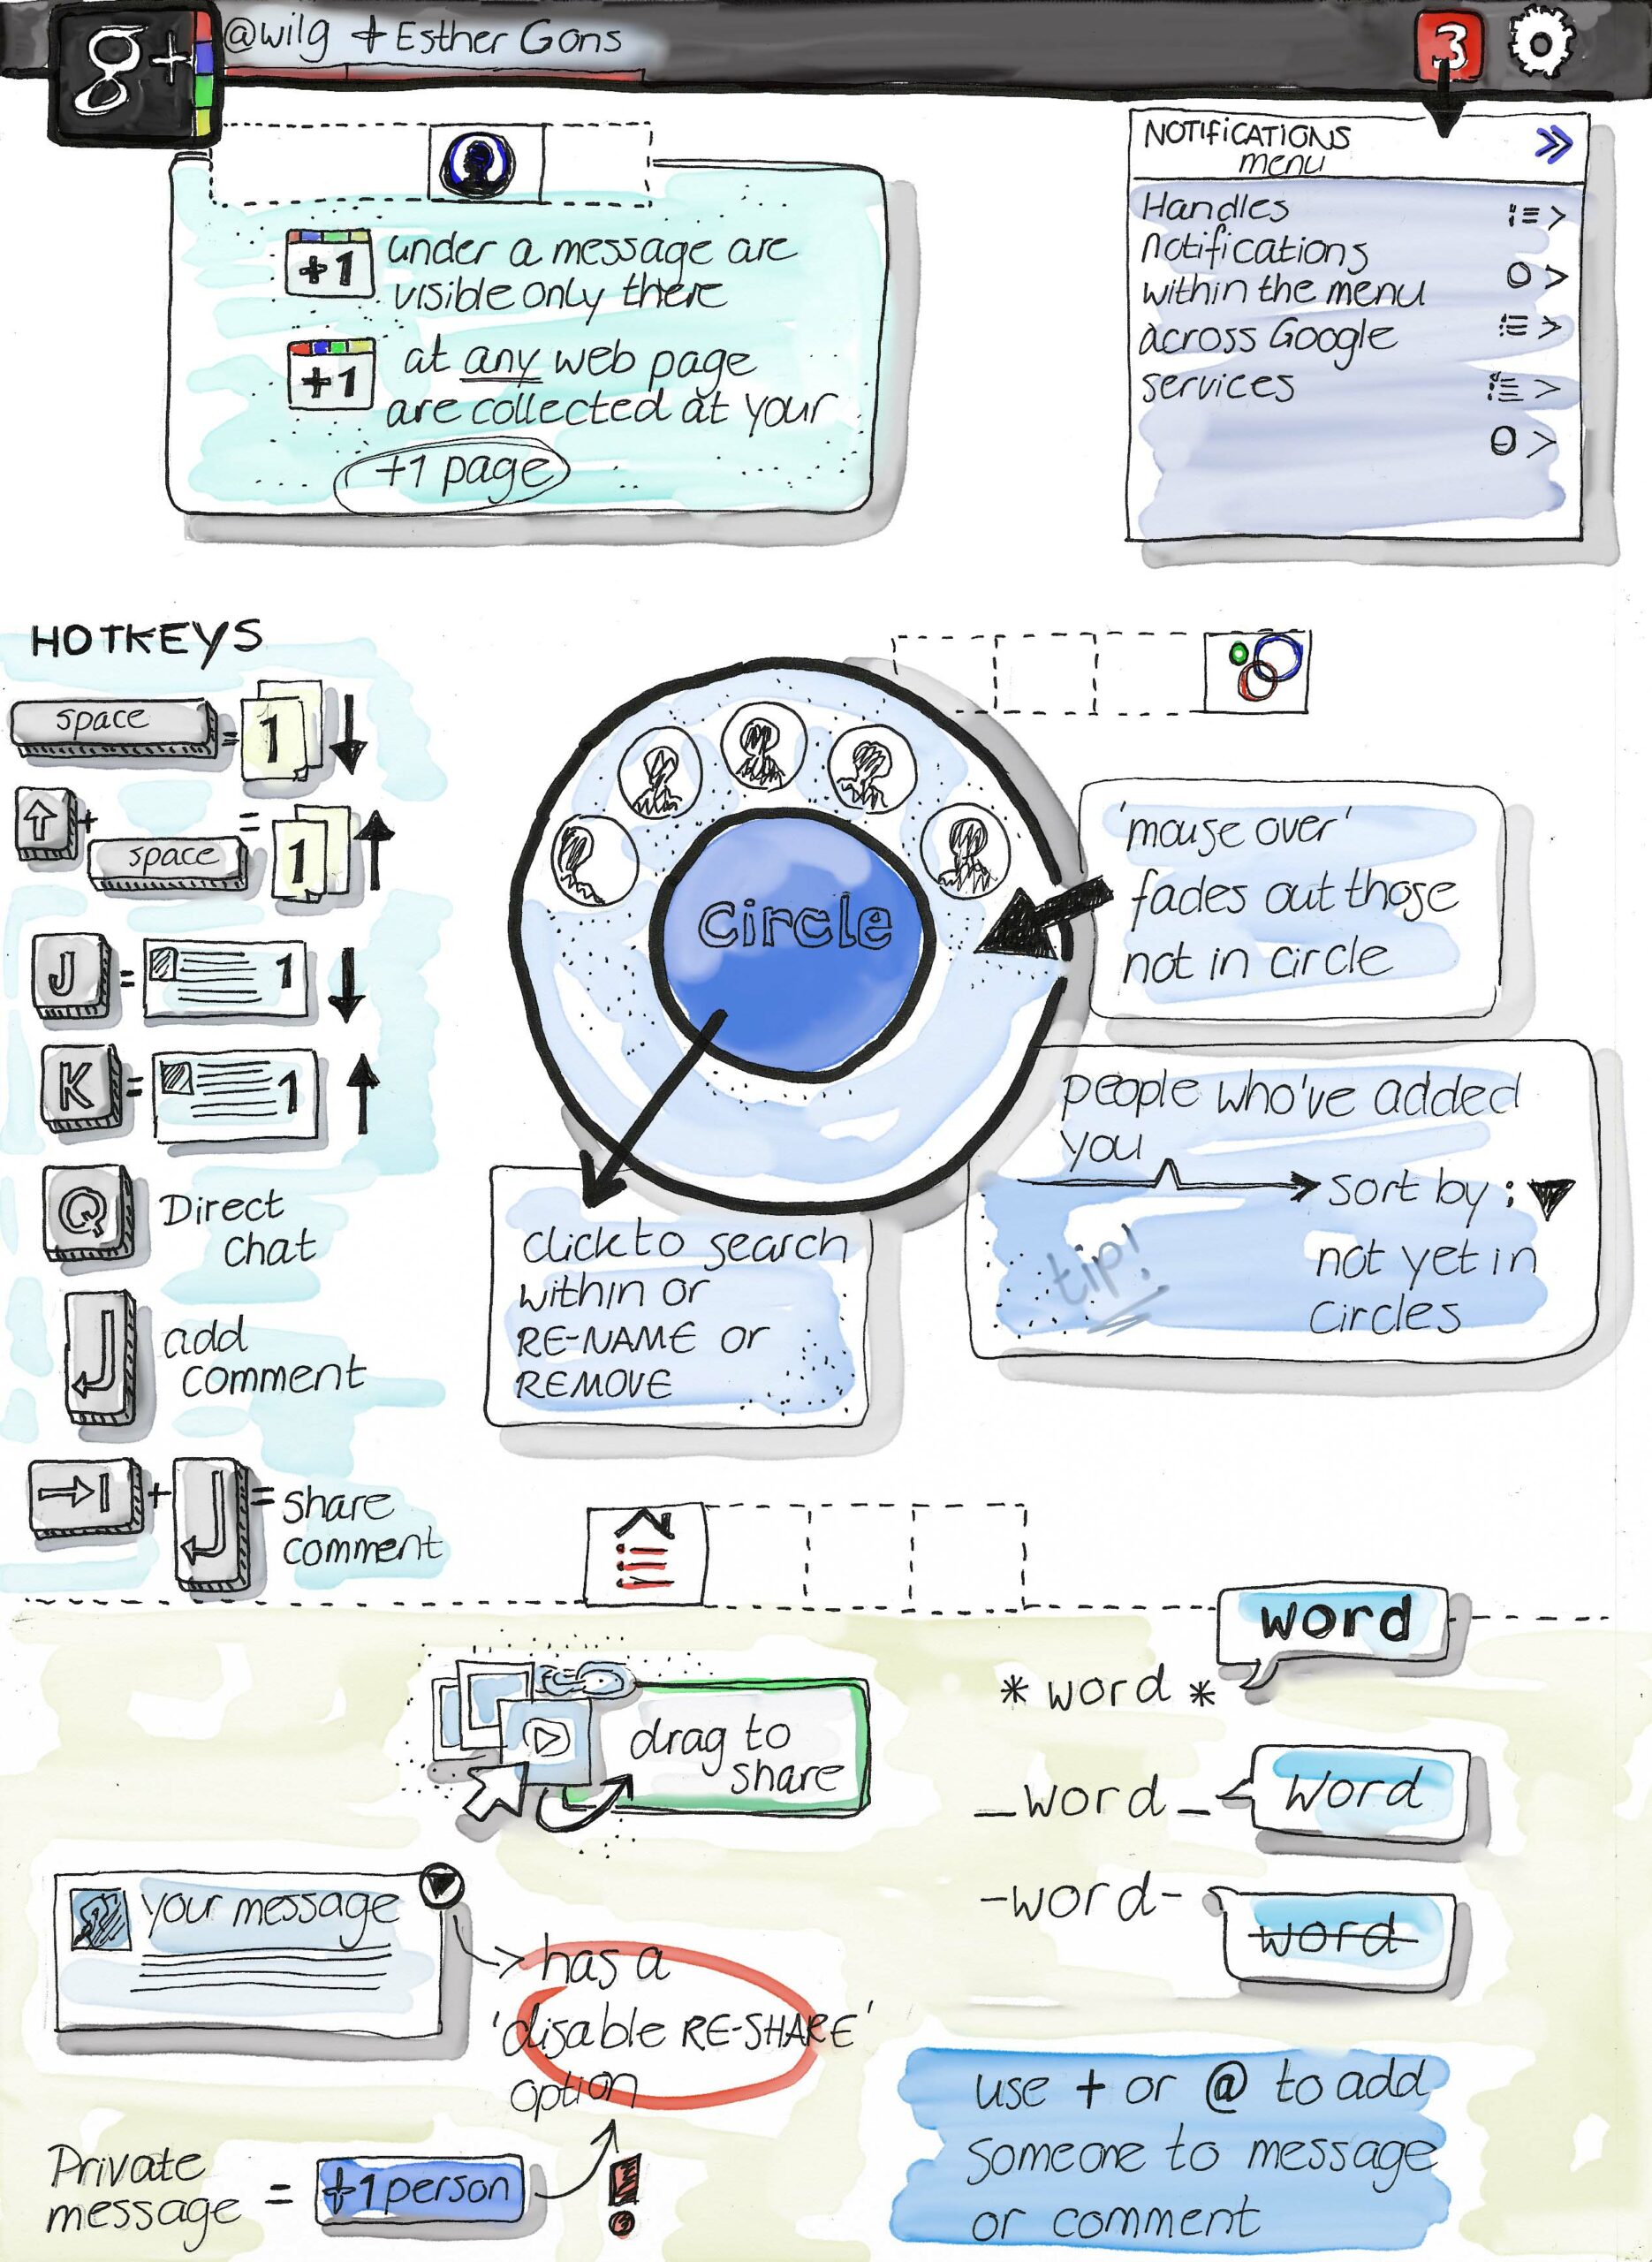 g+
@wilg + Esther Gons
3
+1 under a message are
visible only there
+1 at any web page
are collected at your
+1 page
NOTIFICATIONS
menu
Handles
notifications
within the menu
across Google
services
HOTKEYS
space = 1
+ space = 1
J = 1
K = 1
Q Direct
chat
add
comment
+ = share
comment
circle
'mouse over'
fades out those
not in circle
people who've added
you
sort by :
not yet in
circles
tip!
click to search
within or
RE-NAME or
REMOVE
drag to
share
word
*word*
_word_ word
-word- word
your message
has a
'disable RE-SHARE'
option
Private
message = +1 person !
use + or @ to add
someone to message
or comment